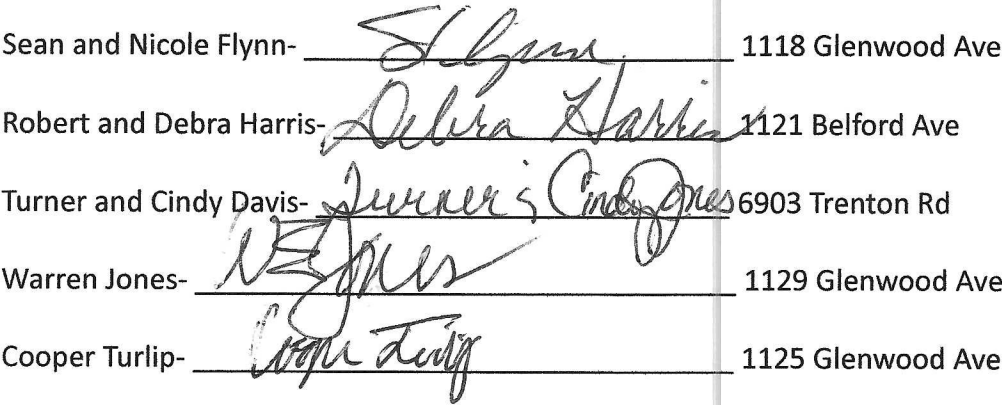 Sean and Nicole Flynn- SFlynn 1118 Glenwood Ave
Robert and Debra Harris- Debra Harris 1121 Belford Ave
Turner and Cindy Davis- Turner & Cindy Jones 6903 Trenton Rd
Warren Jones- WE Jones 1129 Glenwood Ave
Cooper Turlip- Cooper 1125 Glenwood Ave